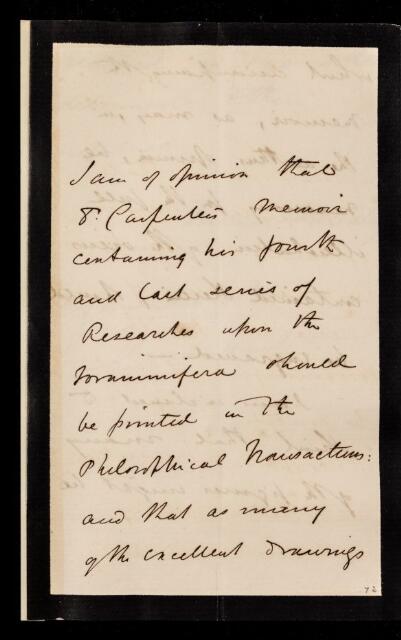 I am of opinion that
Dr. Carpenter's Memoir
containing his fourth
and last series of
Researches upon the
Foraminifera should
be printed in the
Philosophical Transactions:
and that as many
of the excellent drawings
72